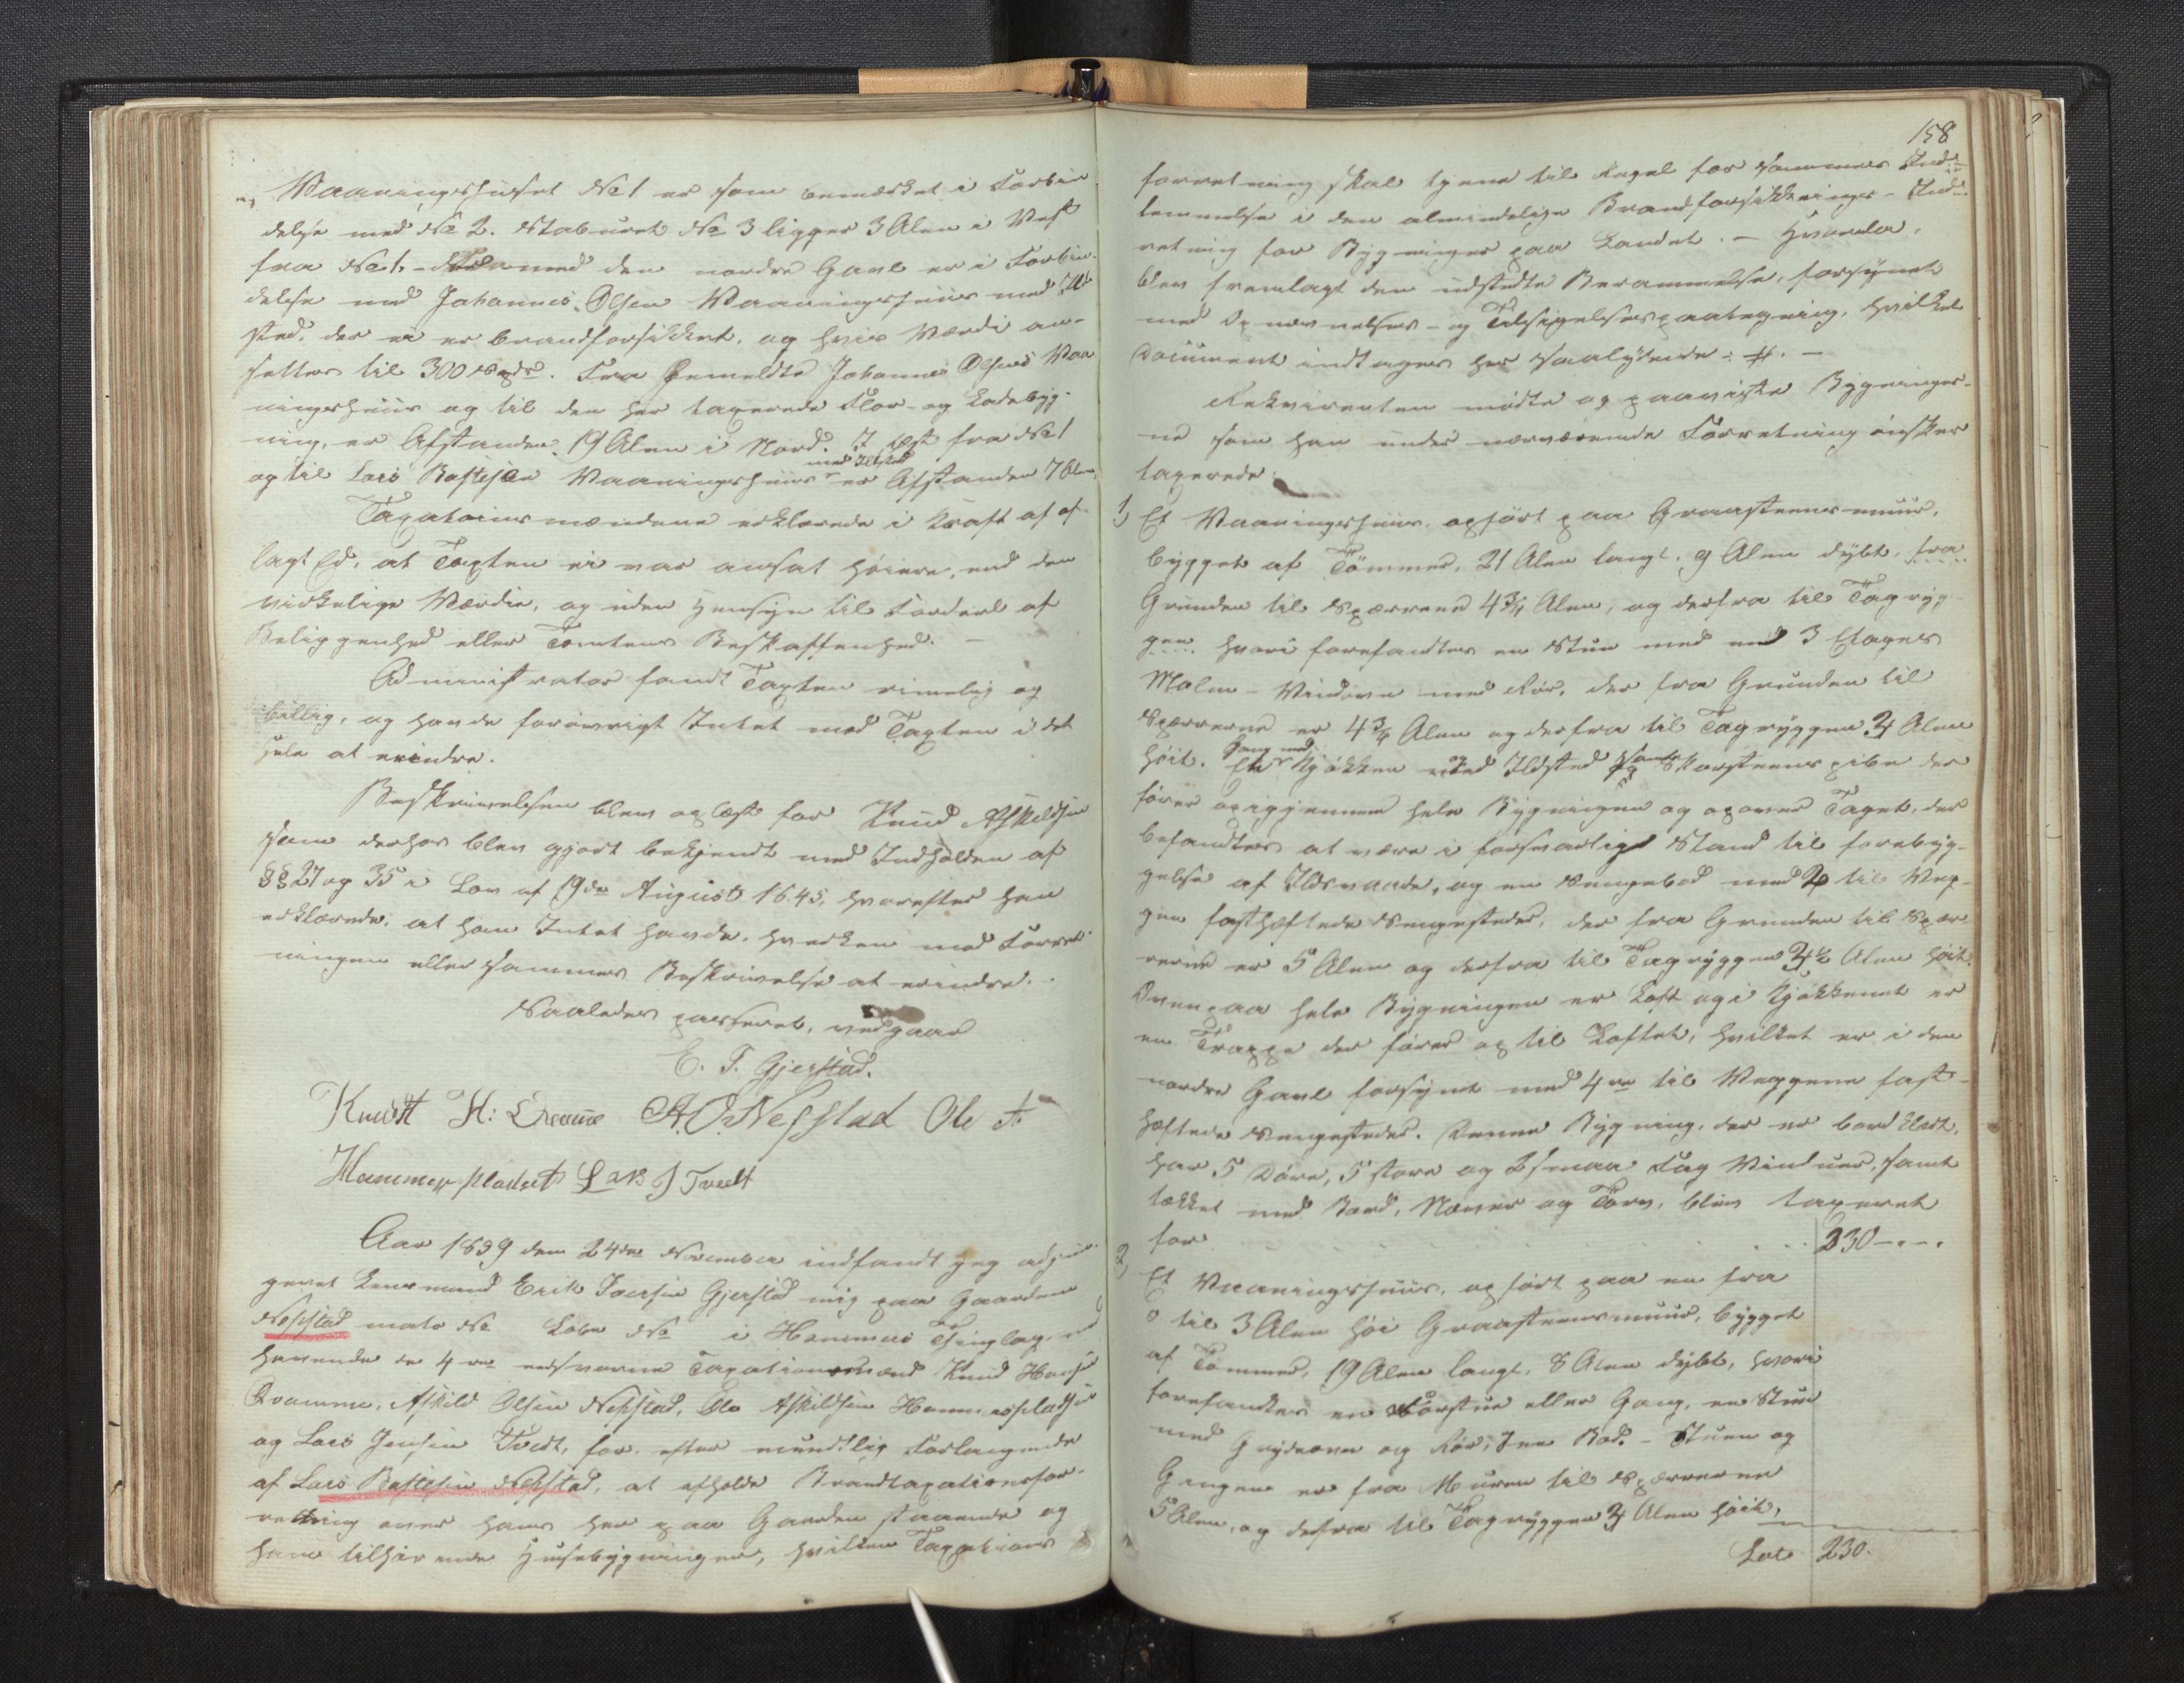 Vaaningshuset No 1 er som bemærket i Forbin
delse med No 2. Staburet No 3 ligger 3 Alen i Vest
fra No 1. med den nordre Gavl er i Forbin-
delse med Johannes Olsens Vaaningshuus med Ild
sted, der ei er brandforsikkret, og hvis Værdi an-
sættes til 300 Spdr. Fra bemeldte Johannes Olsens Vaa
ningshuus og til den her taxerede Flor- og Ladebyg-
ning, er Afstanden 19 Alen i Nord. I Øst fra No 1
og til Lars Botlesen Vaaningshuus med Ildsted er Afstanden 7 Alen.
Taxationsmændene erklærede i Kraft af af-
lagt Ed, at Taxten ei var ansat høiere, end den
virkelige Værdie, og uden Hensyn til Fordeel af
Beliggenhed eller Tomtens Beskaffenhed. —
Administrator fandt Taxten rimelig og
billig, og havde forøvrigt Intet mod Taxten i det
Hele at erindre.
Beskrivelsen blev oplæst for Knud Askildsen
som derhos blev gjort bekjendt med Indholden af
§§ 27 og 35 i Lov af 19de August 1845, hvorefter han
erklærede, at han Intet havde, hverken mod Forret-
ningen eller sammes Beskrivelse at erindre.
Saaledes passeret, vedgaaes
E. I. Gjerstad.
Knudt H: Qvamme A. O. Nepstad Ole A
Hammerspladset Lars J Tveit
Aar 1859 den 24de November indfandt jeg
Lensmand Erik Iversen Gjerstad mig paa Gaarden
Nepstad matr No Løbe No i Hammers Thinglag, med
havende de 4re eedsvorne Taxationsmænd Knud Hansen
Qvamme, Askild Olsen Nepstad, Ole Askildsen Hammerspladsen
og Lars Jensen Tveit, for efter mundtlig Forlangende
af Lars Botlesen Nepstad, at afholde Brandtaxationsfor-
retning over hans her paa Gaarden staaende og
ham tilhørende Huusebygninger, hvilken Taxations
158
forretning skal tjene til Regel for sammes Ind-
lemmelse i den almindelige Brandforsikkrings-Ind-
retning for Bygninger paa Landet. — Hvorda
blev fremlagt den udstedte Berammelse, forsynet
med Opnævnelses- og Tilsigelsespaategning, hvilket
Document indtages her saalydende: #. —
Rekvirenten mødte og paaviste Bygninger-
ne som han under nærværende Forretning ønsker
taxerede:
1) Et Vaaningshuus, opført paa Graasteensmuur,
bygget af Tømmer, 21 Alen langt, 9 Alen dybt, fra
Grunden til Spærrene 4 3/4 Alen, og derfra til Tagryg-
gen hvori forefandtes en Stue med en 3 Etages
Malm-Vindovn med Rør, der fra Grunden til
Spærrerne er 4 3/4 Alen og derfra til Tagryggen 3 Alen
høit. Gang med Kjøkken og Ildsted samt Skorsteenspibe der
fører opigjennem hele Bygningen og opover Taget, der
befandtes at være i forsvarlig Stand til forebyg-
gelse af Ildsvaade, og en Sengebod med 2 til Væg-
gen fasthæftede Sengesteder, der fra Grunden til Spær-
rerne er 5 Alen og derfra til Tagryggen 3 1/2 Alen høit.
Ovenpaa hele Bygningen er Loft og i Kjøkkenet er
en Trappe der fører op til Loftet, hvilket er i den
nordre Gavl forsynt med 4re til Væggene fast-
hæftede Sengesteder. Denne Bygning, der er bordklædt,
har 5 Døre, 5 store og 2 smaa Fag Vinduer, samt
tækket med Bord, Næver og Torv, blev taxeret
for 230 — . .
2) Et Vaaningshuus, opført paa en fra
0 til 3 Alen høi Graasteensmuur, bygget
af Tømmer, 19 Alen langt, 8 Alen dybt, hvori
forefandtes en Forstue eller Gang, en Stue
med Grydeovn og Rør; 1 en Bod. — Stuen og
Gangen er fra Muren til Spærrerne
5 Alen, og derfra til Tagryggen 3 Alen høit,
Lat. 230.